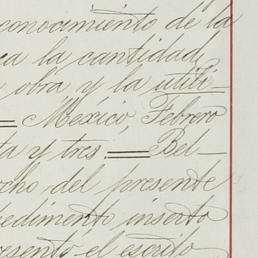 conocimiento de la
ca la cantidad
obra y la utili-
México, Febrero
ta y tres. Bel-
cho del presente
pedimento inserto
resentó el escrito